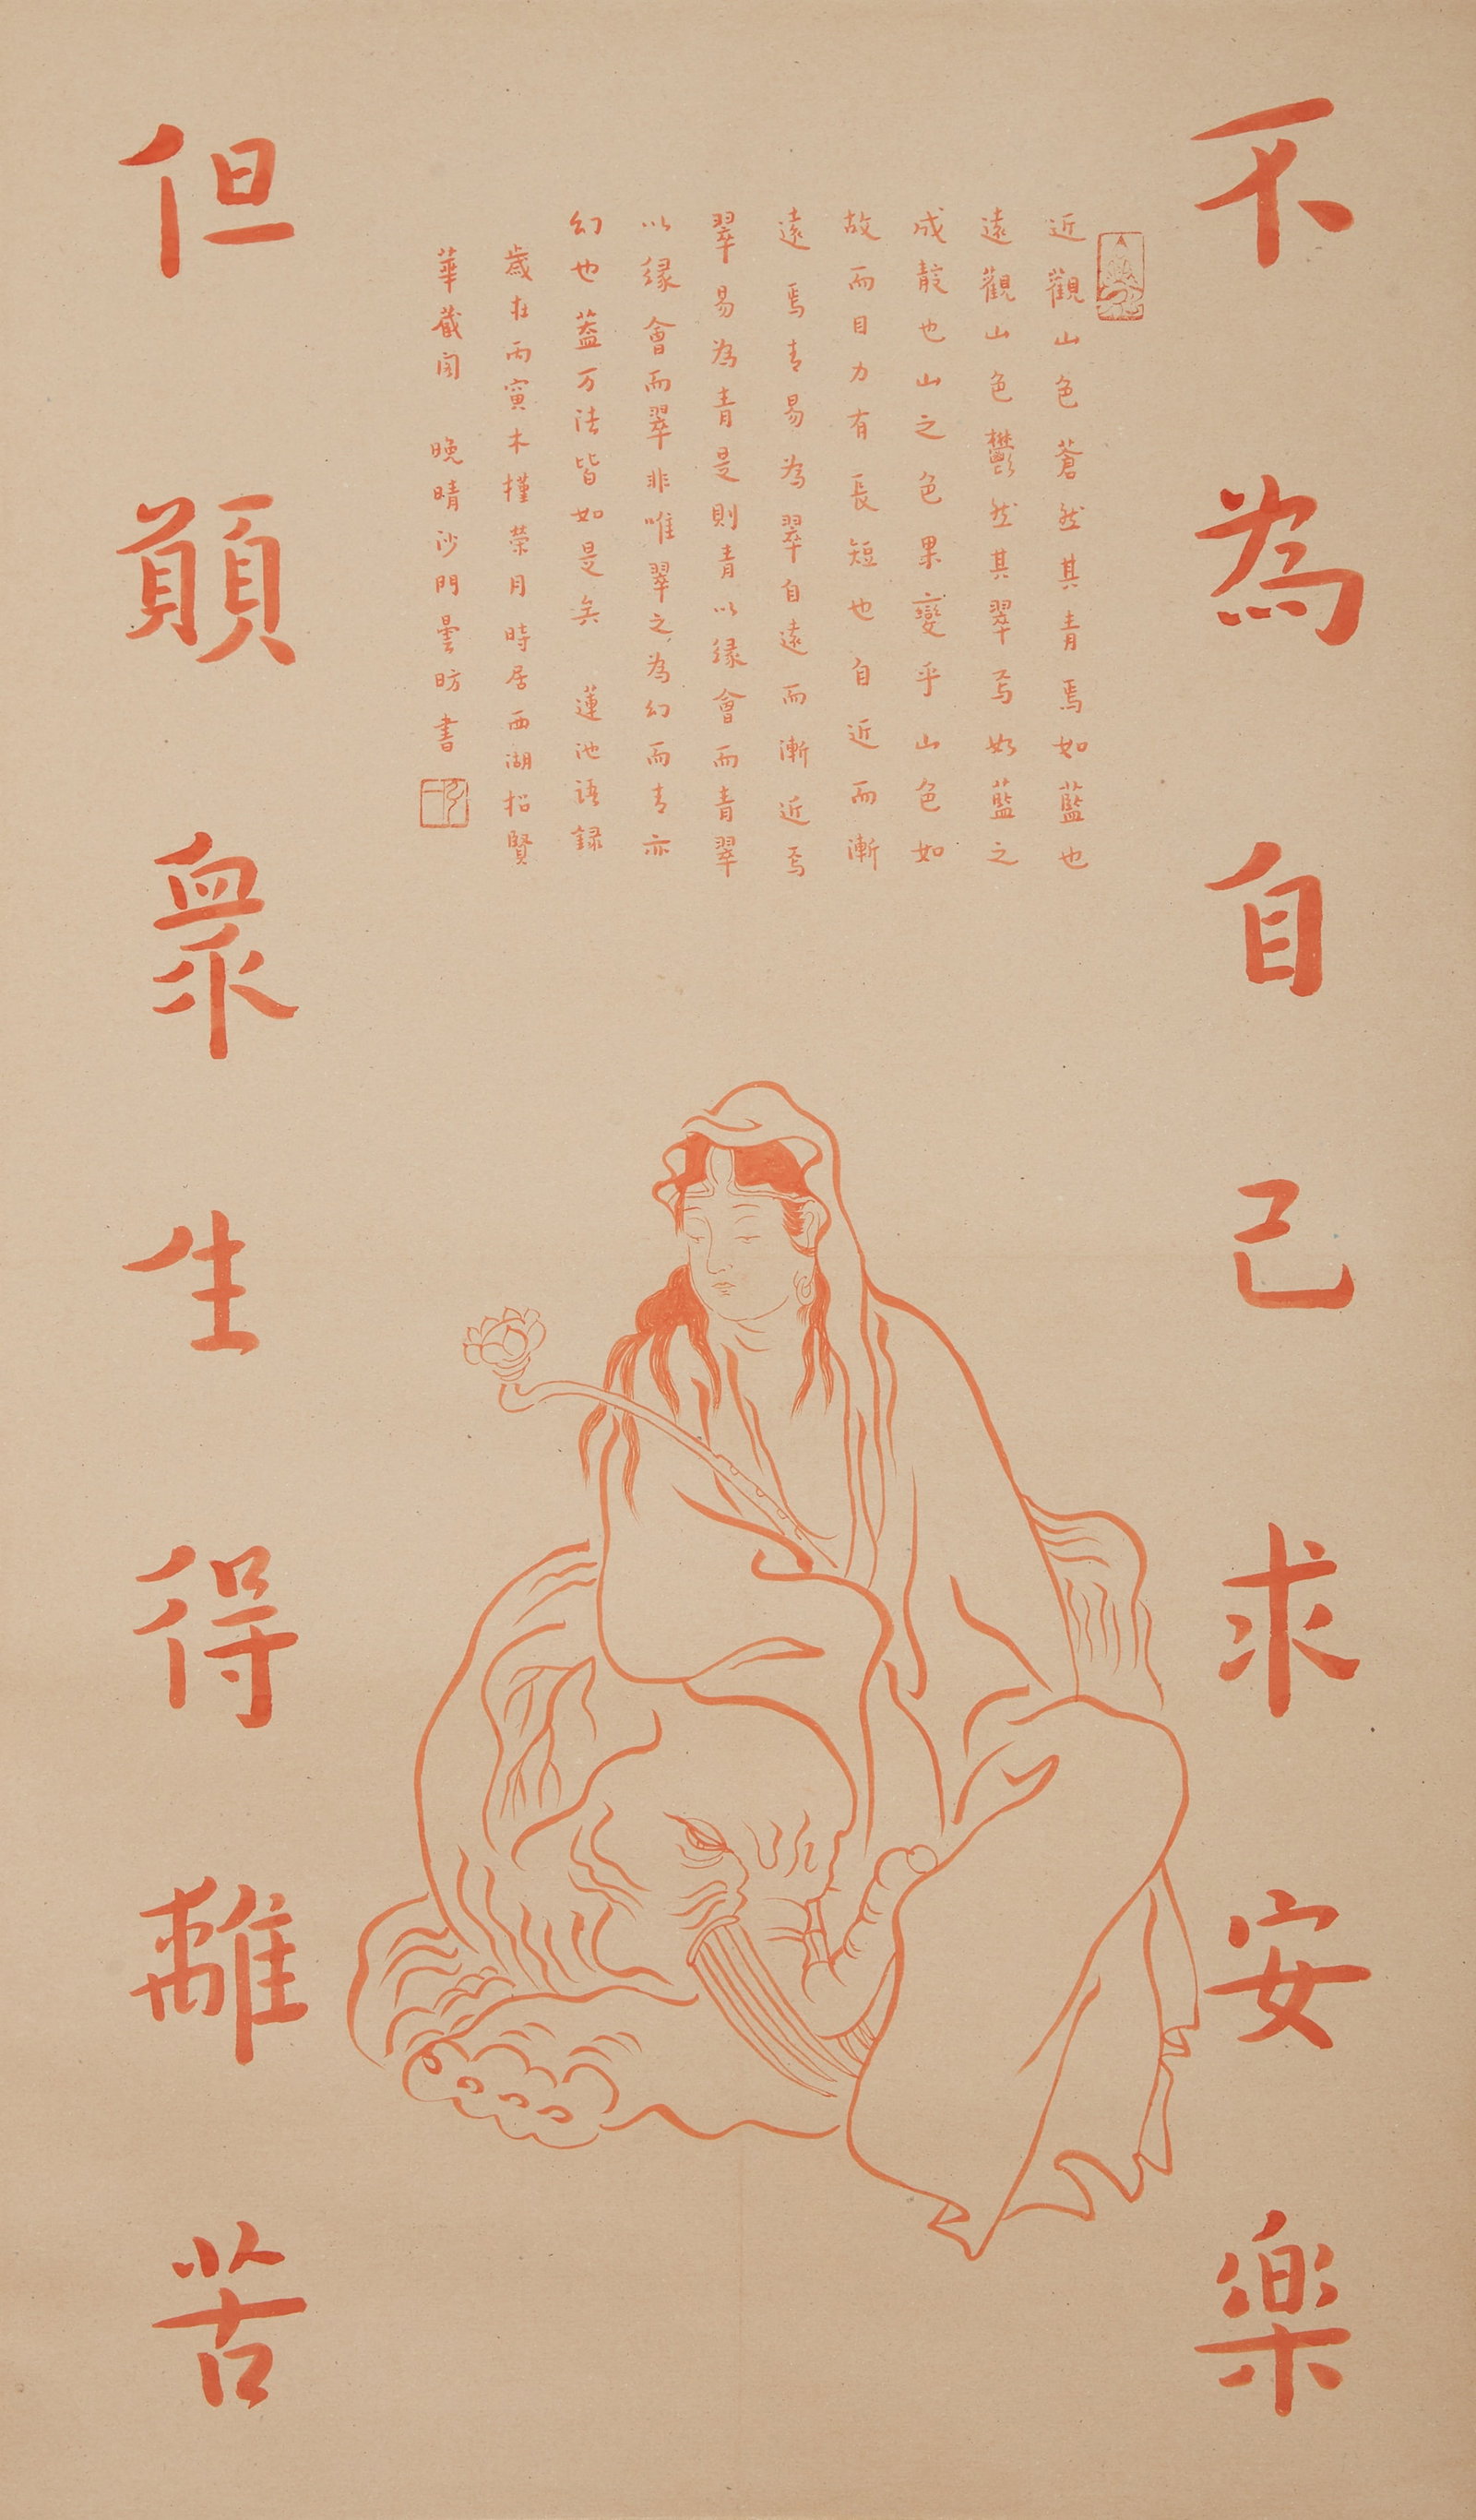 不為自己求安樂
近觀山色蒼然其青焉如藍也
遠觀山色鬱然其翠焉如藍之
成靛也山之色果變乎山色如
故而目力有長短也自近而漸
遠焉青易為翠自遠而漸近焉
翠易為青是則青以緣會而青翠
以緣會而翠非唯翠之為幻而青亦
幻也蓋万法皆如是矣 蓮池語録
歲在丙寅木槿榮月時居西湖招賢
華藏閣 晚晴沙門曇昉書
但願眾生得離苦